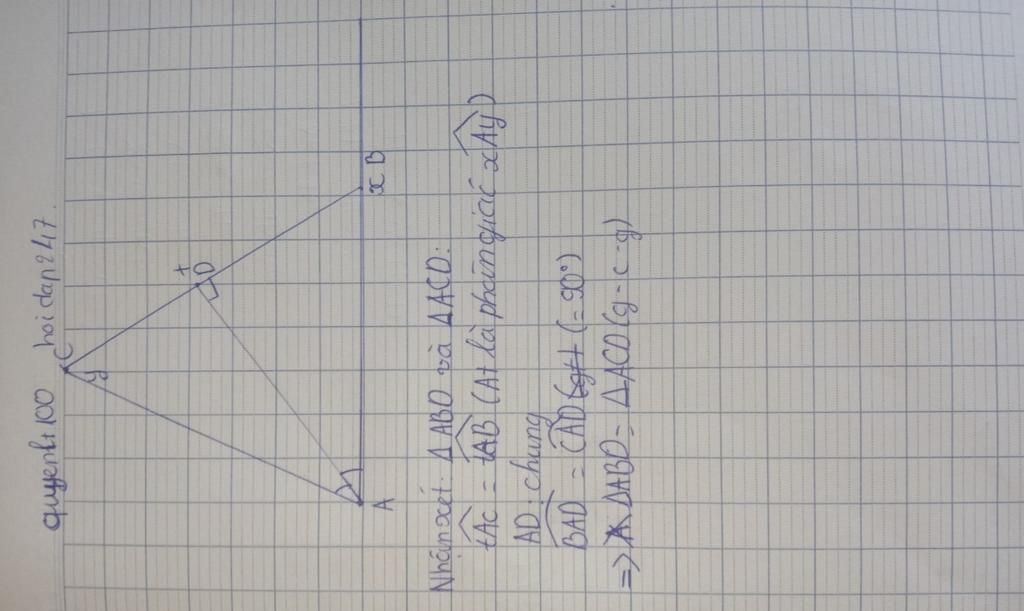 quyenh1100 hoidap247.
C
y
t
D
A
x B
Nhận xét: ΔABD và ΔACD:
tAC = tAB (At là phân giác xAy)
AD: chung
BAD = CAD (gt) (= 90°)
=> ΔABD = ΔACD (g - c - g)